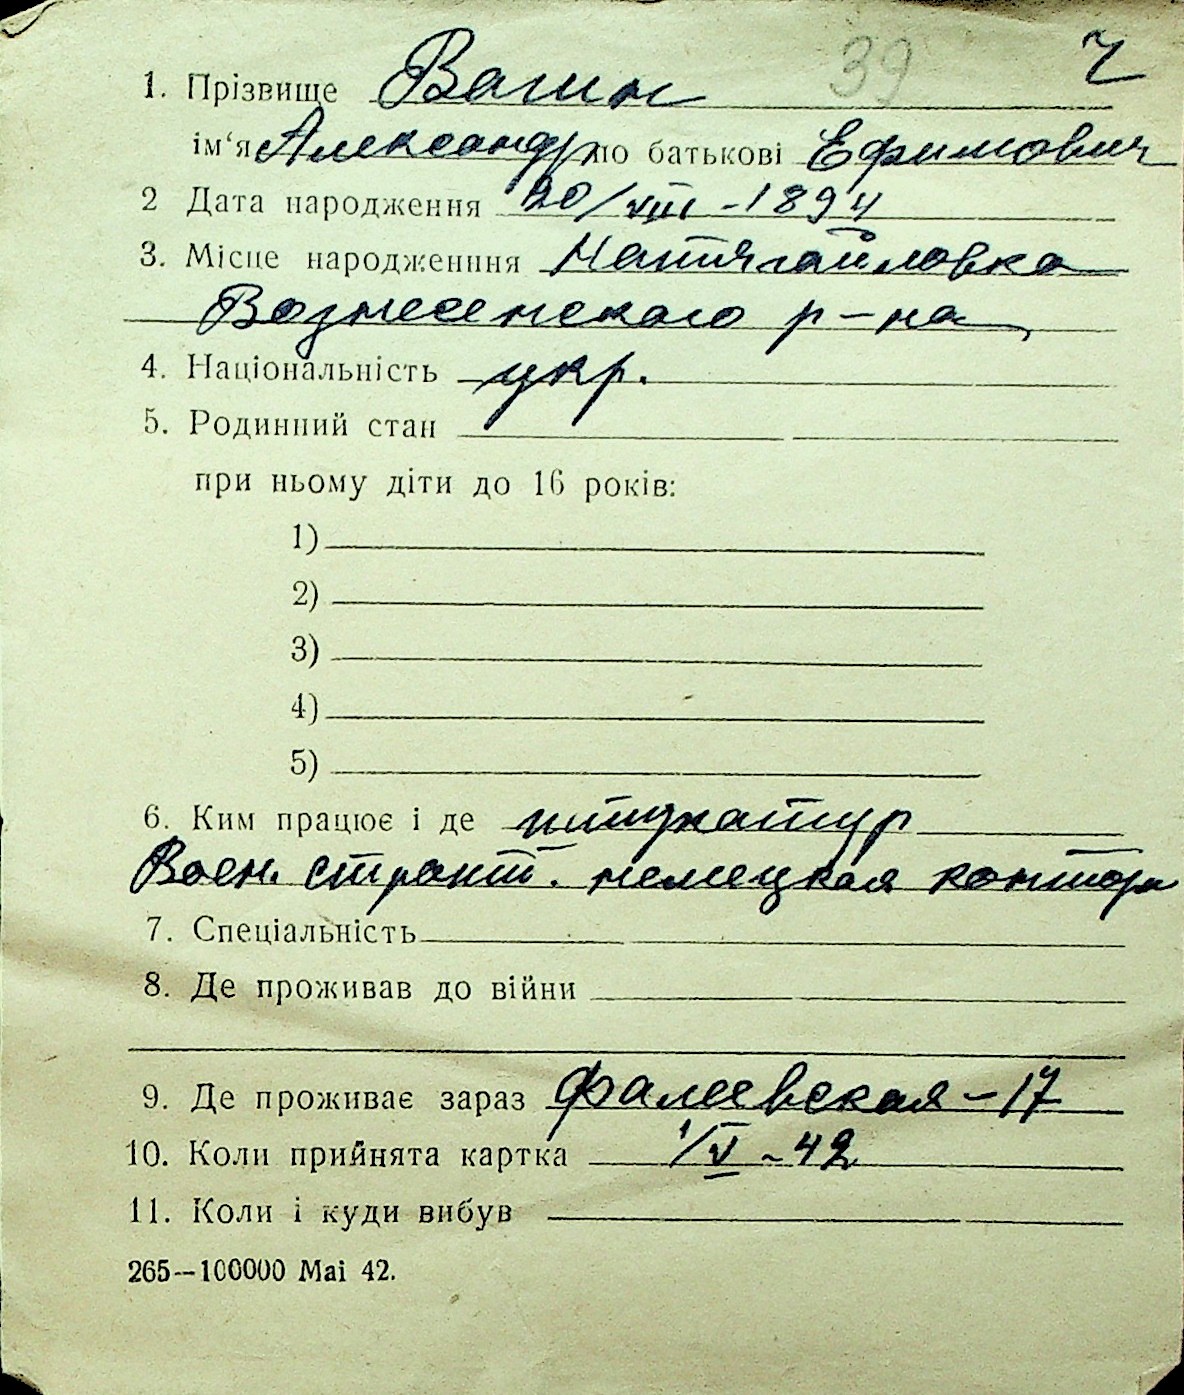 39 Ч
1. Прізвище Вагин
ім‘я Александр по батькові Ефимович
2 Дата народження 20/VIII - 1894
3. Місце народженння Натягайловка
Вознесенского р-на
4. Національність укр.
5. Родинний стан
при ньому діти до 16 років:
1)
2)
3)
4)
5)
6. Ким працює і де штукатур
Воен. строит. немецкая контора
7. Спеціальність
8. Де проживав до війни
9. Де проживає зараз Фалеевская - 17
10. Коли прийнята картка 1/V - 42
11. Коли і куди вибув
265—100000 Mai 42.